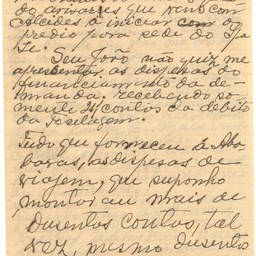 do arvores que van com
alcides á iniciar com o
predio para sede do Ipa
se.
Seu João não quiz me
apresentar as dispesas do
financiamento da de-
manda, recebendo so
mente 24 contos a debito
da
Tudo que forneceu de Aba
baras, as dispesas de
viagem, que suponho
montar au mais de
dusentos contos, tal
vez, mesmo dusento